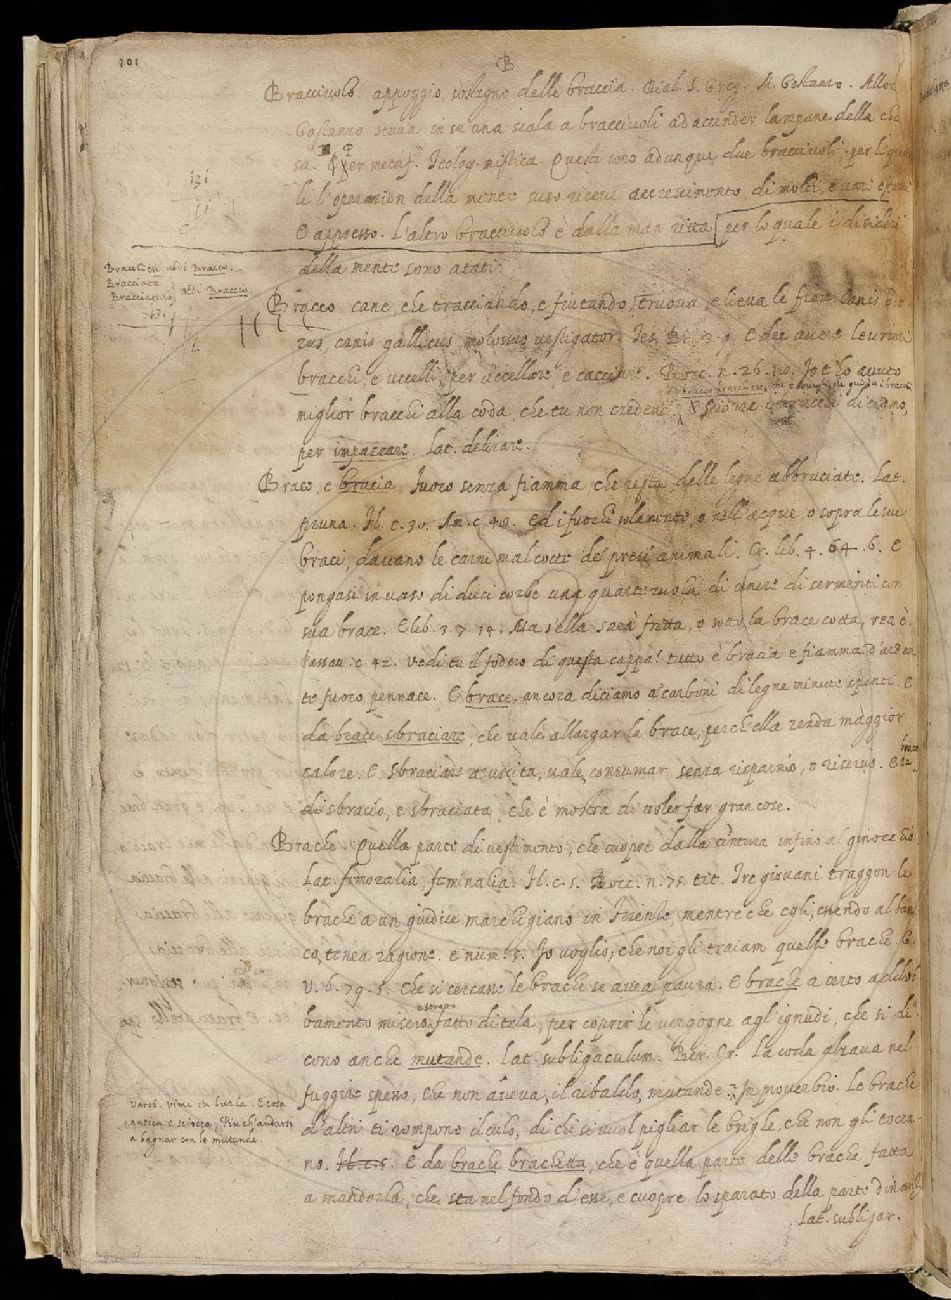 101
B
Bracciuolo. appoggio, sostegno delle braccia. Dial. S. Greg. M. Costanzo. Allora
Costanzo stava in su una scala a bracciuoli ad accender la mpane della chie
sa. per metaf. Teolog. mistica. Questi sono adunque due bracciuoli, per li qua
li l'operazion della mente suso riceve accrescimento di molti, e vari
E appresso. L'altro bracciuolo è dalla man ritta per lo quale i disideri
della mente sono atati.
Braccheto vedi Bracco.
Bracciata
Bracciatello vedi Braccio.
Bracco cane, che tracciando, e fiutando, truova, e lieva le fiere. Lat. canis odo
rus, canis gallicus, molossus vestigator. Tes. Br. 3. 9. E dee avere levrieri
bracchi, e uccelli per uccellare, e cacciare. Bocc. n. 26. 10. Io t'ho avuto
miglior bracchi alla coda, che tu non credevi. bracchi diciamo,
per impazzare. Lat. delirare.
Brace, e bracia fuoco senza fiamma, che resta delle legne abbruciate. Lat.
pruna. H. c. 30. An. c. 40. Ed i fuochi solamente, o nell'acque, o sopra le sue
braci, davano le carni mal cotte de' presi animali. Cr. lib. 4. 64. 6. E
pongasi in vaso di dieci corbe una quarteruola di cenere di sermenti con
sua brace. E lib. 3. 7. 14. Ma s'ella sarà fritta, o sotto la brace cotta, rea è.
Passav. c. 42. Vedi tu il fodero di questa cappa? tutto è bracia e fiamma d'arden
te fuoco pennace. E brace. ancora diciamo a' carboni di legne minute spenti. E
da brace sbraciare, che vale allargar la brace, perch'ella renda maggior
calore. E sbraciare a uscita, vale, consumar senza risparmio, o riservo. E da brace
di sbracio, e sbraciata, che è mostra di voler far gran cose.
Brache. Quella parte di vestimento, che cuopre dalla cintura infino al ginocchio
Lat. femoralia, feminalia. H. c. 5. Bocc. n. 75. tit. Tre giovani traggon le
brache a un giudice marchigiano in Firenze mentre che egli, essendo al ban
co, tenea ragione. e num. 5. Io voglio, che noi gli traiam quelle brache. G.
V. 6. 79. 5. Che si cercasse le brache se avea paura. E brache a certo addob
bamento misero. fatto di tela, per coprir le vergogne agl'ignudi, che si di
cono anche mutande. Lat. subligaculum. Ber. Or. La coda alzava nel
fuggire spesso, Che non aveva, il ribaldo, mutande. In proverbio. Le brache
d'altri ti rompono il culo, di chi si vuol pigliar le brighe, che non gli tocca-
no. H. c. 5. E da brache brachetta, che è quella parte delle brache fatta
a mandorla, che sta nel fondo d'esse, e cuopre lo sparato della parte dinanzi
Lat. subligar.
Varch. rime in burla. E cosa
antica e sciocca, Più ch'andarsi
a bagnar con le mutande.